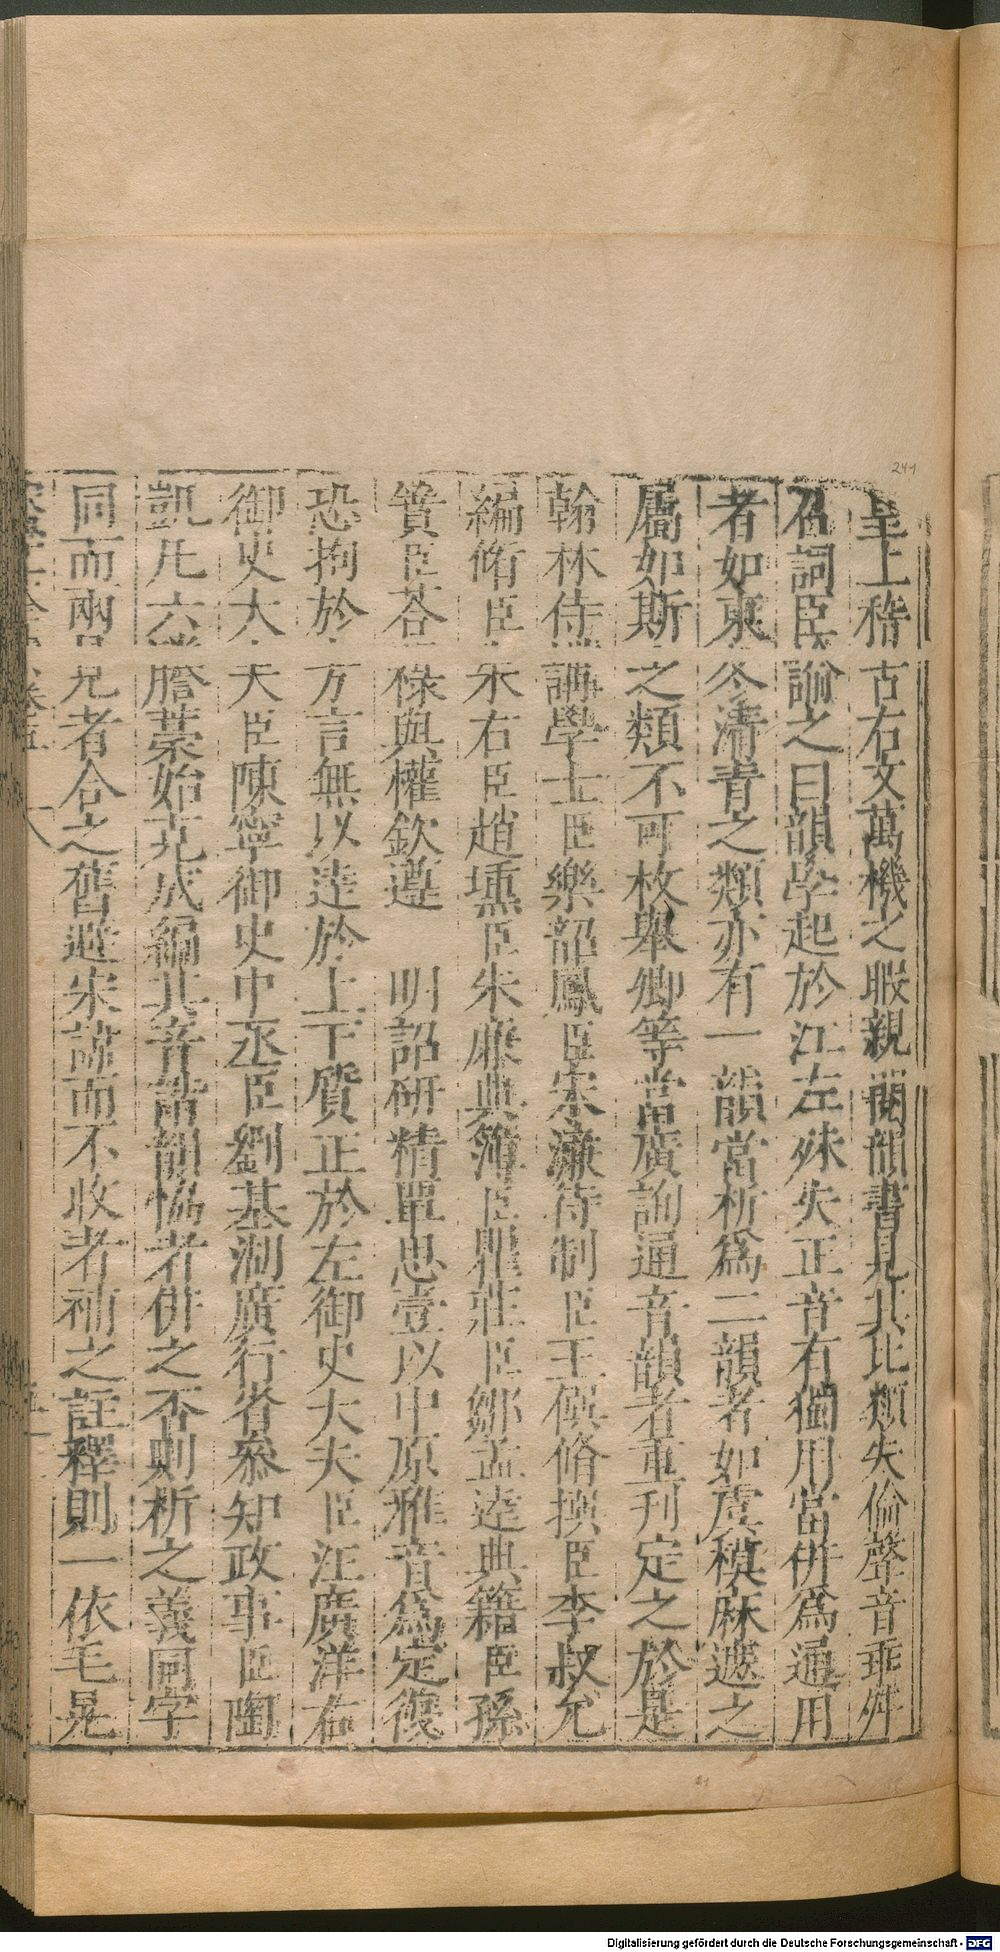 241
皇上稽古右文萬機之暇親閱韻書見其比類失倫聲音乖舛
召詞臣諭之曰韻學起於江左殊失正音有獨用當併爲通用
者如東冬清青之類亦有一韻當析爲二韻者如虞模麻遮之
屬如斯之類不可枚舉卿等當廣詢通音韻者重刊定之於是
翰林侍講學士臣樂韶鳳臣宋濂待制臣王僎脩撰臣李叔允
編脩臣朱右臣趙壎臣朱廉典簿臣瞿莊臣鄒孟達典籍臣孫
蕡臣荅祿與權欽遵 明詔研精單思壹以中原雅音爲定復
恐拘於方言無以達於上下質正於左御史大夫臣汪廣洋右
御史大夫臣陳寧御史中丞臣劉基湖廣行省叅知政事臣陶
凱凡六謄藁始克成編其音諧韻恊者併之否則析之義同字
同而兩見者合之舊避宋諱而不收者補之註釋則一依毛晃
八
Digitalisierung gefördert durch die Deutsche Forschungsgemeinschaft - DFG